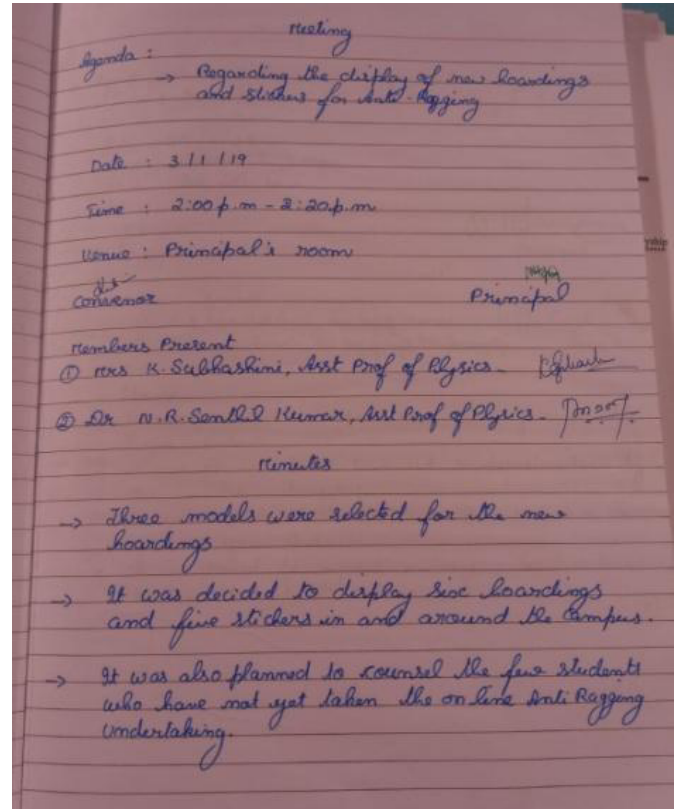 Meeting
Agenda :
→ Regarding the display of new hoardings
and stickers for Anti-Ragging
Date : 3/1/19
Time : 2:00 p.m - 2:20 p.m
Venue : Principal's room
Convenor Principal
Members Present
① Mrs K. Subhashini, Asst Prof of Physics -
② Dr N.R. Senthil Kumar, Asst Prof of Physics -
Minutes
→ Three models were selected for the new
hoardings
→ It was decided to display six hoardings
and five stickers in and around the campus.
→ It was also planned to counsel the few students
who have not yet taken the on line Anti Ragging
Undertaking.